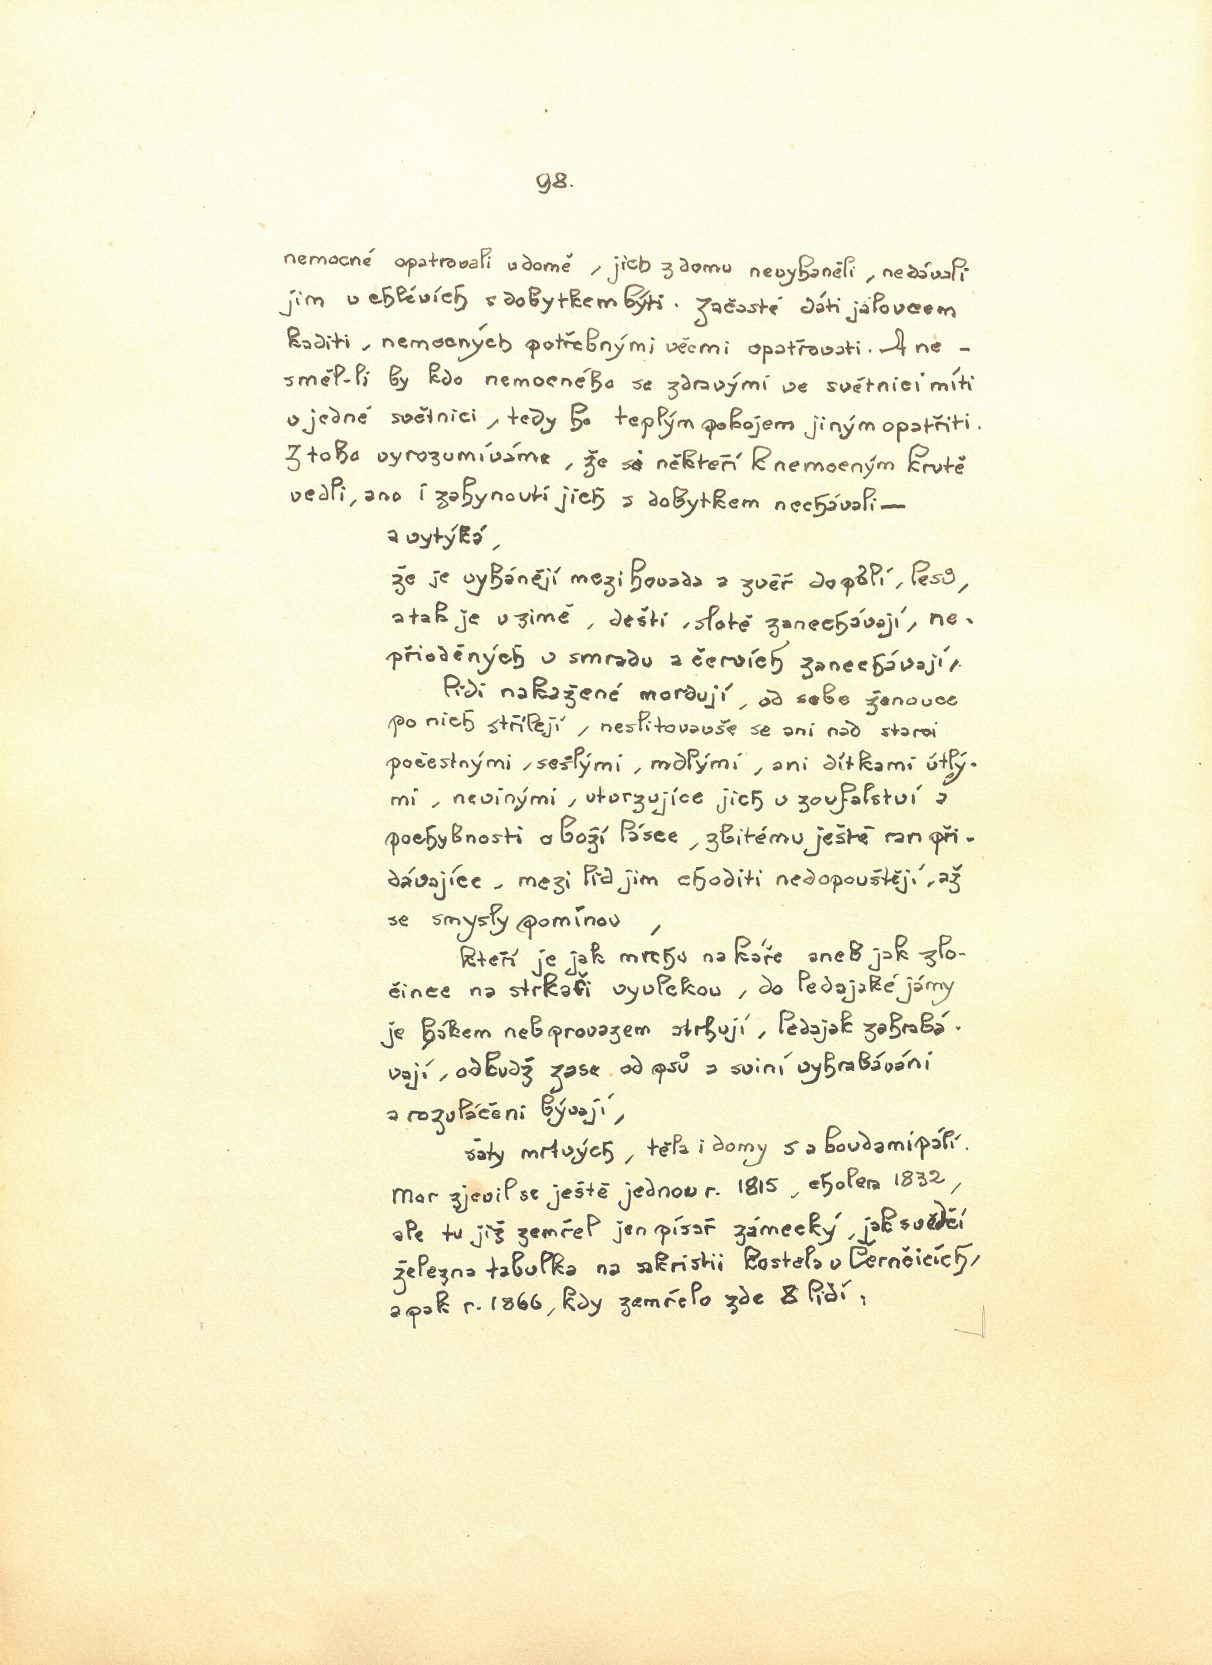 98.
nemocné opatrovali v domě, jich z domu nevyháněli, nedávali
jim v chlévích s dobytkem býti. Začasté dáti jalovcem
kaditi, nemocných potřebnými věcmi opatřovati. A ne -
směl-li by kdo nemocného se zdravými ve světnici míti
v jedné světnici, tedy ho teplým pokojem jiným opatřiti.
Z toho vyrozumíváme, že si někteří k nemocným krutě
vedli, ano i zahynouti jich s dobytkem nechávali—
a vytýká,
že je vyhánějí mezi hovada a zvěř do polí, lesů,
a tak je v zimě, dešti, slotě zanechávají, ne-
přioděných v smradu a červích zanechávají,
lidi nakažené mordují, od sebe ženouce
po nich střílejí, neslitovavše se ani nad starci
počestnými, sešlými, mdlými, ani dítkami útlý-
mi, nevinými, utvrzujíce jich v zoufalství a
pochybnosti o boží lásce, zbitému ještě ran při-
dávajíce, mezi lid jim choditi nedopouštějí, až
se smysly pominou,
kteří je jak mrchu na káře aneb jak zlo-
čince na strkači vyvlekou, do ledajaké jámy
je hákem neb provazem strhují, ledajak zahrabá-
vají, odkudž zase od psů a sviní vyhrabáváni
a rozvláčeni bývají,
šaty mrtvých, těla i domy s a boudami pálí.
Mor zjevil se ještě jednou r. 1815, cholera 1832,
ale tu již zemřel jen písař zámecký, jak svědčí
železna tabulka na sakristii kostela v Černčicích,
a pak r. 1866, kdy zemřelo zde 8 lidí;